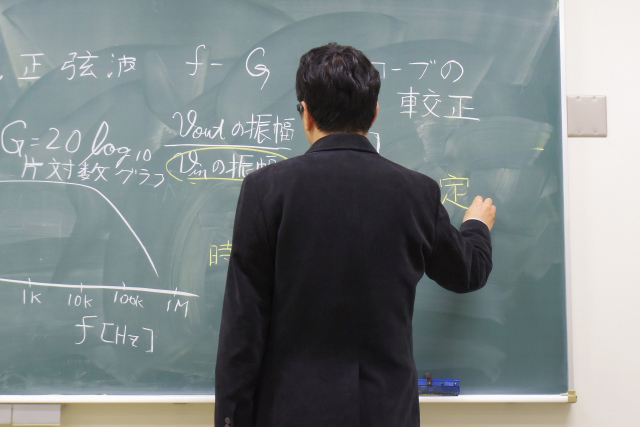 正弦波 f-G ローブの
較正
G=20 log10 Voutの振幅
Vinの振幅 ]
片対数グラフ
定
時
1K 10k 100k 1M
f [Hz]